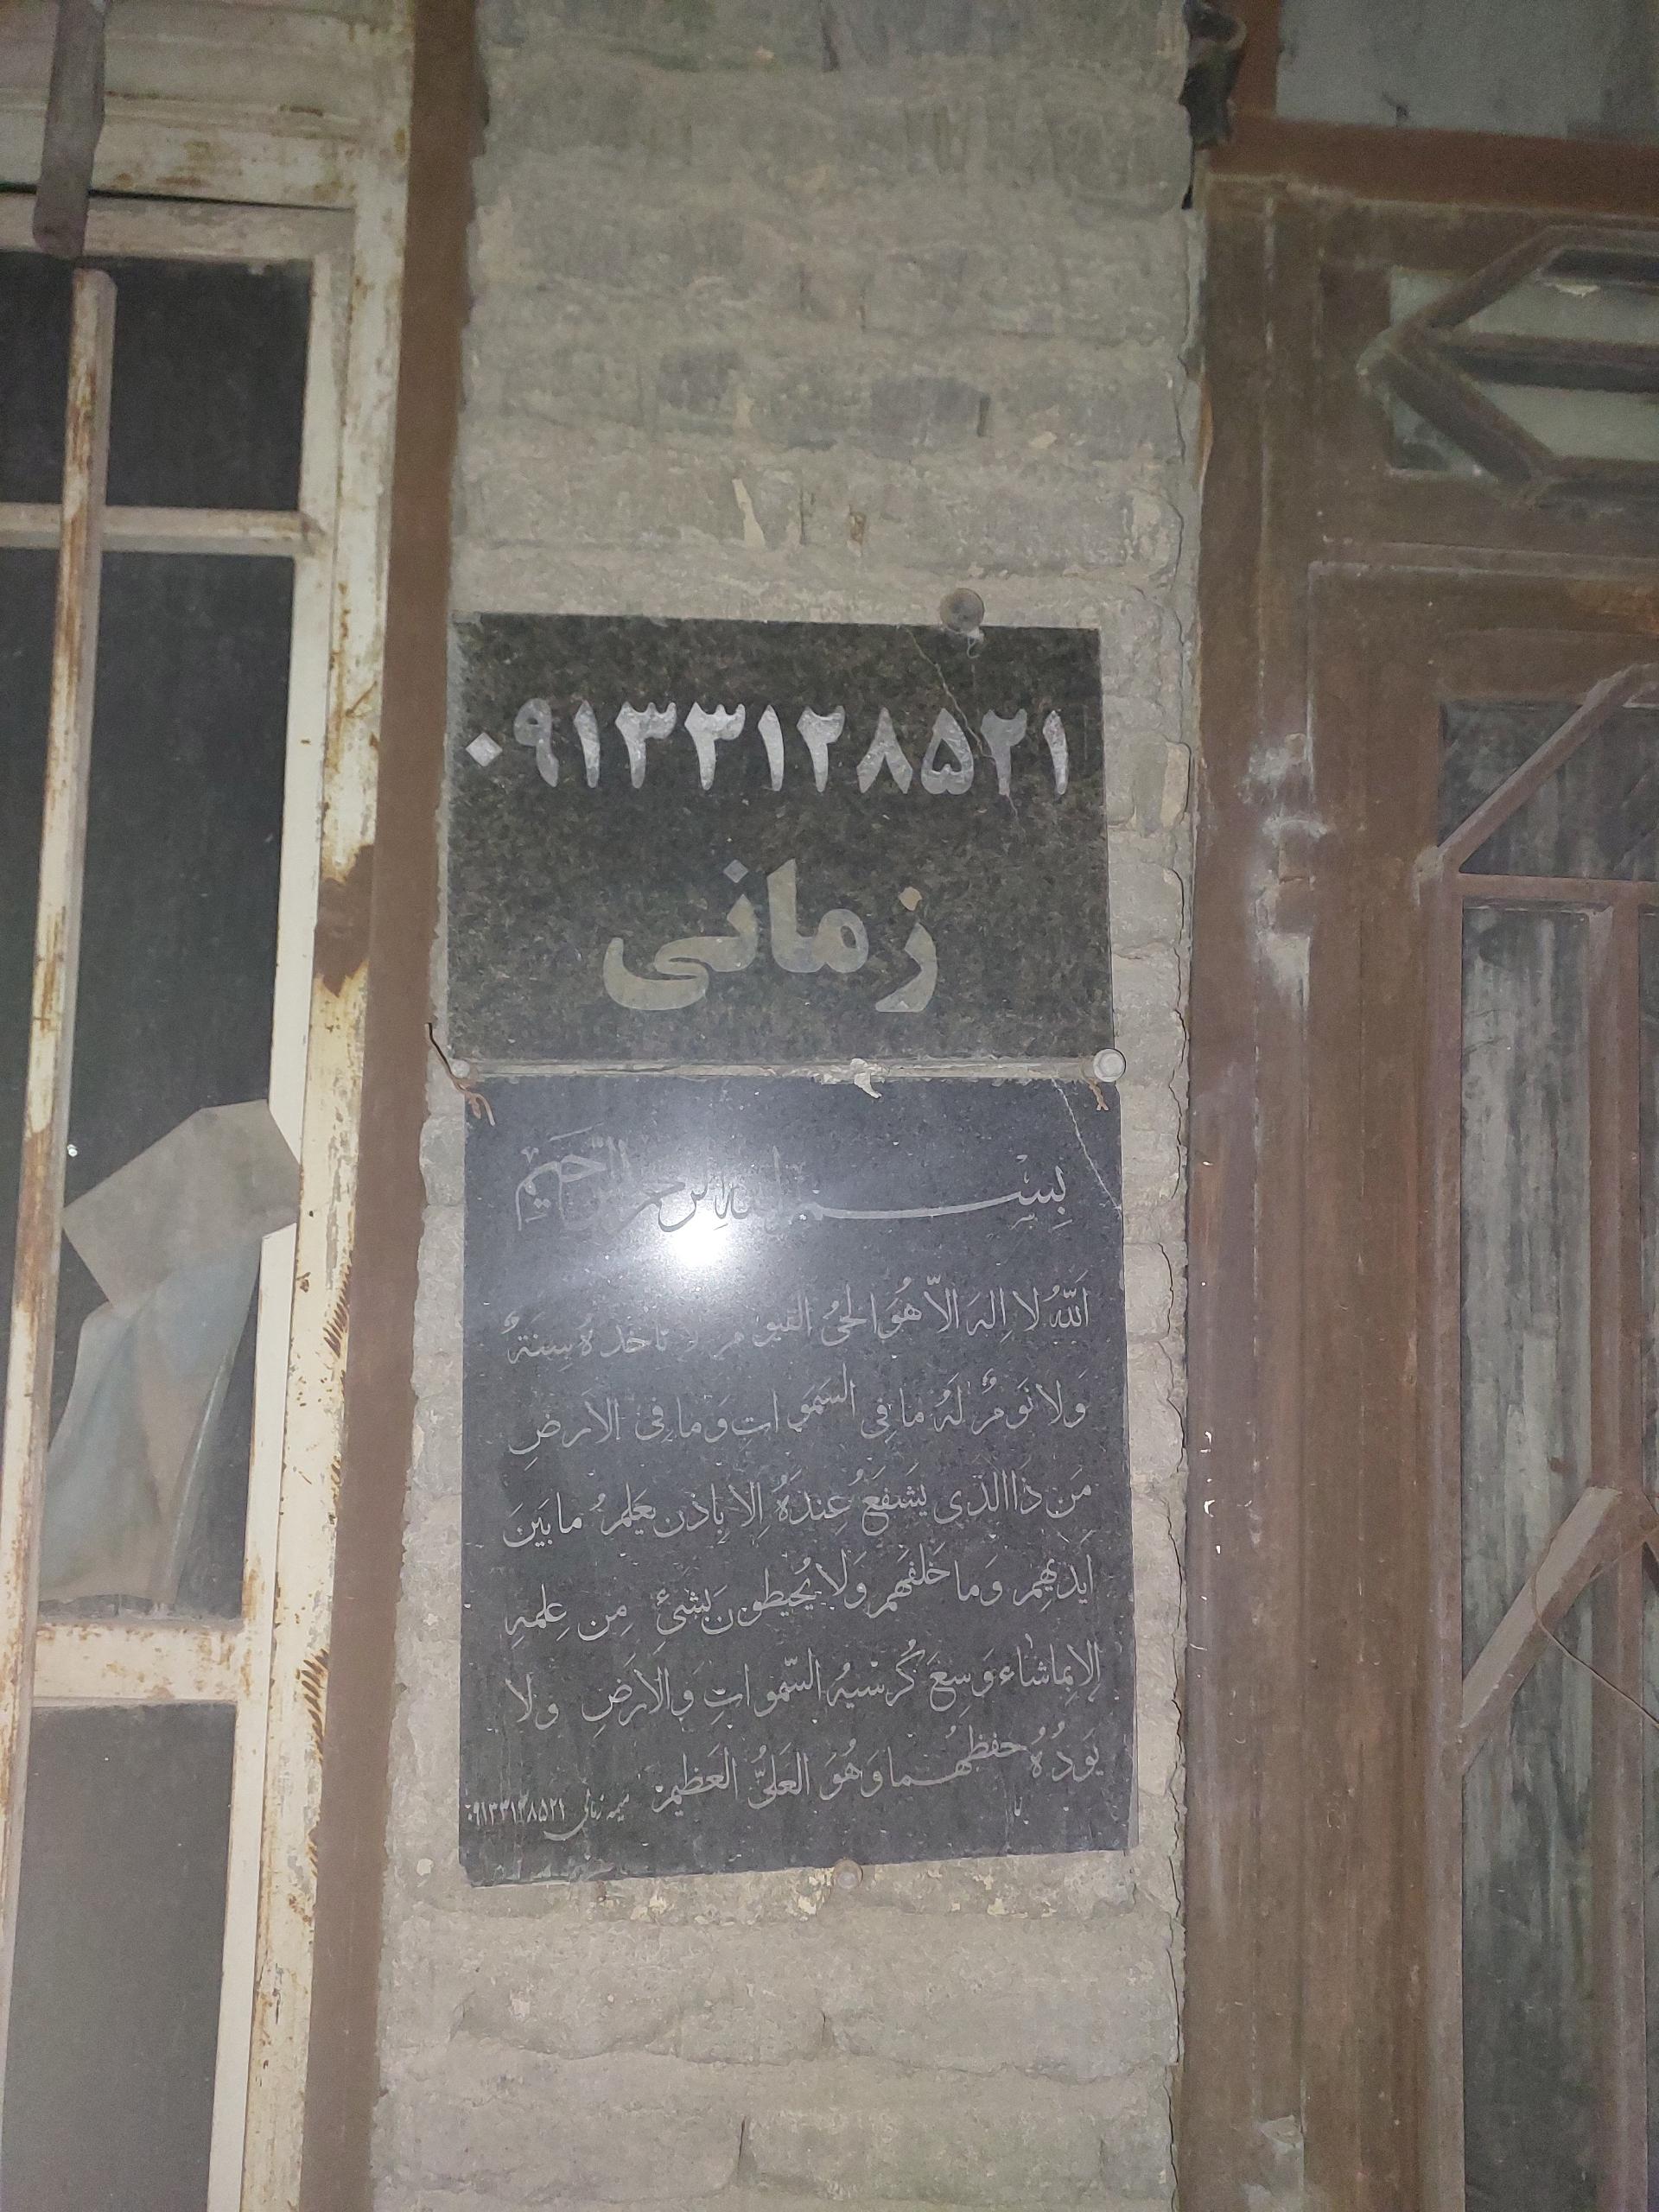 ۰۹۱۳۳۱۲۸۵۲۱
زمانی
بِسْمِ اللهِ الرحمن الرَّحيمِ
اَللهُ لا اِلهَ الاّ هُوَ الحَىُّ القيوم لا تاخذهُ سِنَةٌ
وَلا نَومٌ لَهُ ما فِى السَمَواتِ وَما فِى الاَرضِ
مَن ذَا الذى يَشفَعُ عِندَهُ اِلا بِاذن يعَلمُ ما بَينَ
اَيديهِم وَما خَلفَهم وَلا يُحيطون بَشىءٍ مِن عِلمهِ
اِلا بِماشاء وَسِعَ كُرسيهُ السّموات وَالاَرضِ ولا
يَودُهُ حفظهُما وَهُوَ العَلىُّ العَظيم
زمانی ۰۹۱۳۳۱۲۸۵۲۱